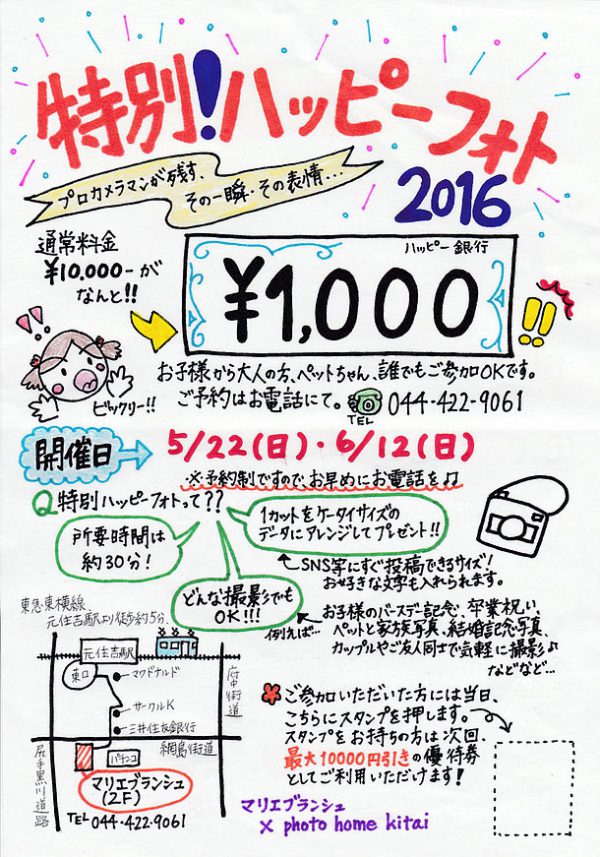 特別!ハッピーフォト
2016
プロカメラマンが残す、
その一瞬・その表情・・・
通常料金
¥10,000-が
なんと!!
ハッピー銀行
¥1,000
!!
!!
ビックリー!!
お子様から大人の方、ペットちゃん、誰でもご参加OKです。
ご予約はお電話にて。
TEL
044-422-9061
開催日
5/22(日)・6/12(日)
※予約制ですので、お早めにお電話を♫
Q特別ハッピーフォトって??
所要時間は
約30分!
1カットをケータイサイズの
データにアレンジしてプレゼント!!
SNS等にすぐ投稿できるサイズ!
お好きな文字も入れられます。
どんな撮影でも
OK!!!
例えば…
お子様のバースデー記念、卒業祝い、
ペットと家族写真、結婚記念写真、
カップルやご友人同士で気軽に撮影♪
などなど…
東急東横線、
元住吉駅より徒歩約5分、
元住吉駅
東口
マクドナルド
サークルK
三井住友銀行
府中街道
綱島街道
パチンコ
尻手黒川道路
マリエブランシュ
(2F)
TEL 044-422-9061
ご参加いただいた方には当日、
こちらにスタンプを押します。
スタンプをお持ちの方は次回、
最大10000円引きの優待券
としてご利用いただけます!
マリエブランシュ
× photo home kitai